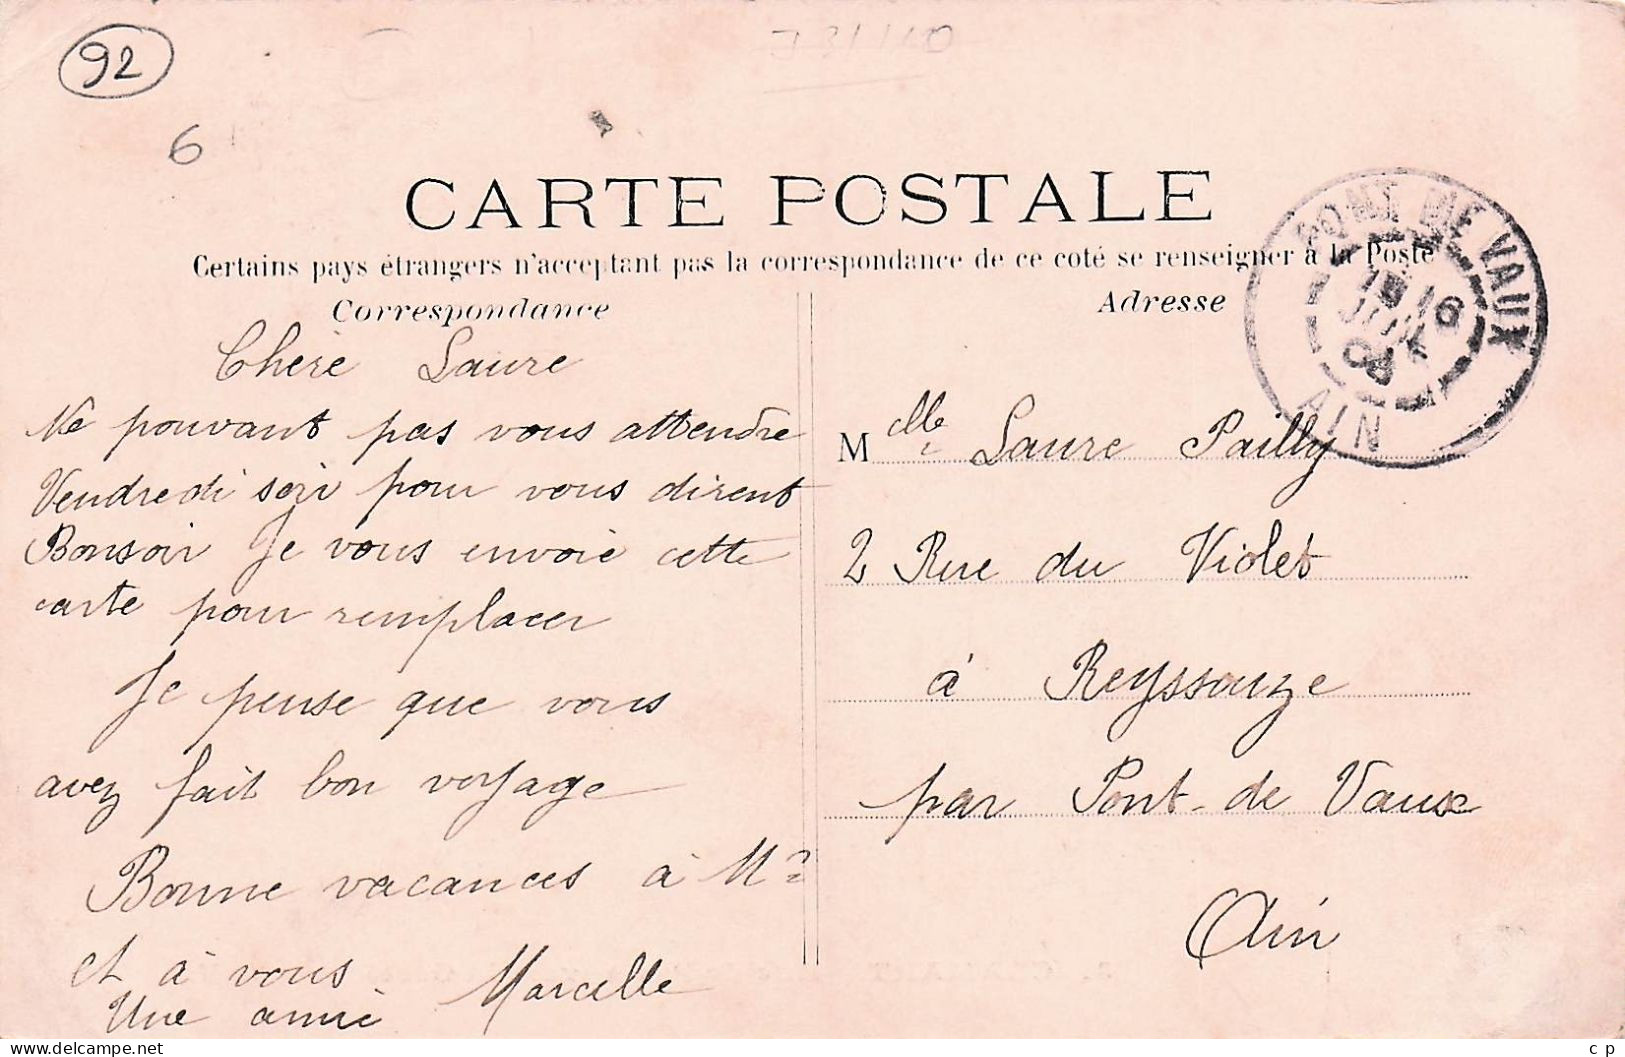 92
6
CARTE POSTALE
Certains pays étrangers n'acceptant pas la correspondance de ce coté se renseigner à la Poste
Correspondance
Adresse
PONT DE VAUX
AIN
Chère Laure
Ne pouvant pas vous attendre
Vendredi soir pour vous dirent
Bonsoir Je vous envoie cette
carte pour remplacer
Je pense que vous
avez fait bon voyage
Bonne vacances à
et à vous
Une amie Marcelle
Melle Laure Pailly
2 Rue du Violet
à Reyssouze
par Pont-de Vaux
Ain
c p
https://www.delcampe.net